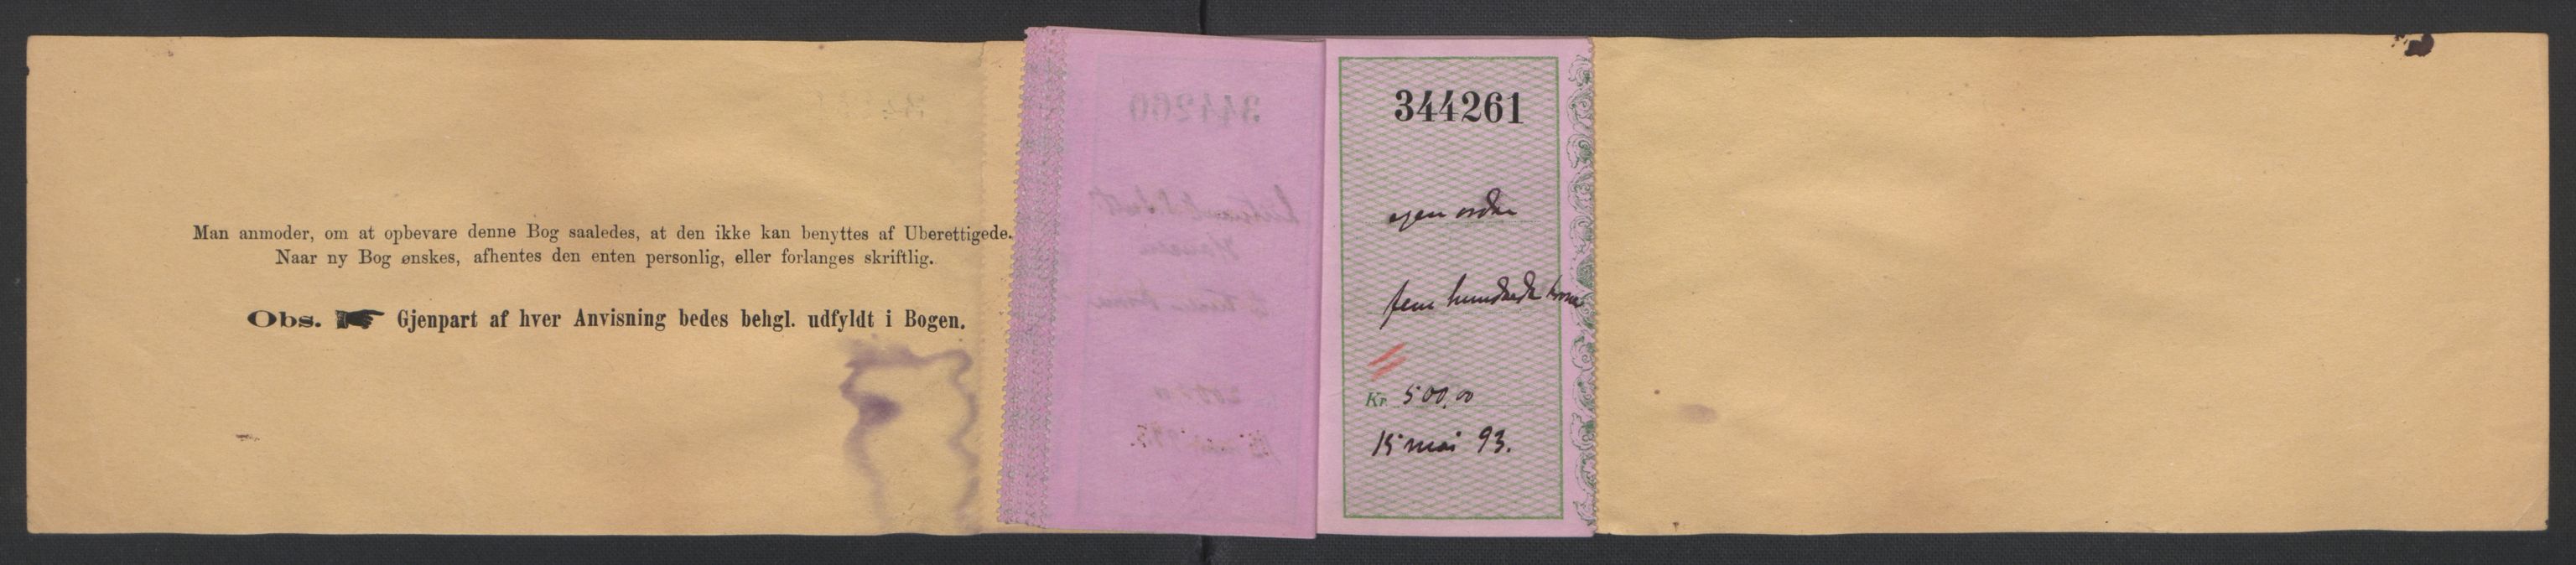 Man anmoder, om at opbevare denne Bog saaledes, at den ikke kan benyttes af Uberettigede.
Naar ny Bog ønskes, afhentes den enten personlig, eller forlanges skriftlig.
Obs. ☛ Gjenpart af hver Anvisning bedes behgl. udfyldt i Bogen.
344260
344261
egen ordre
fem hundrede kroner
Kr. 500,00
15 mai 93.